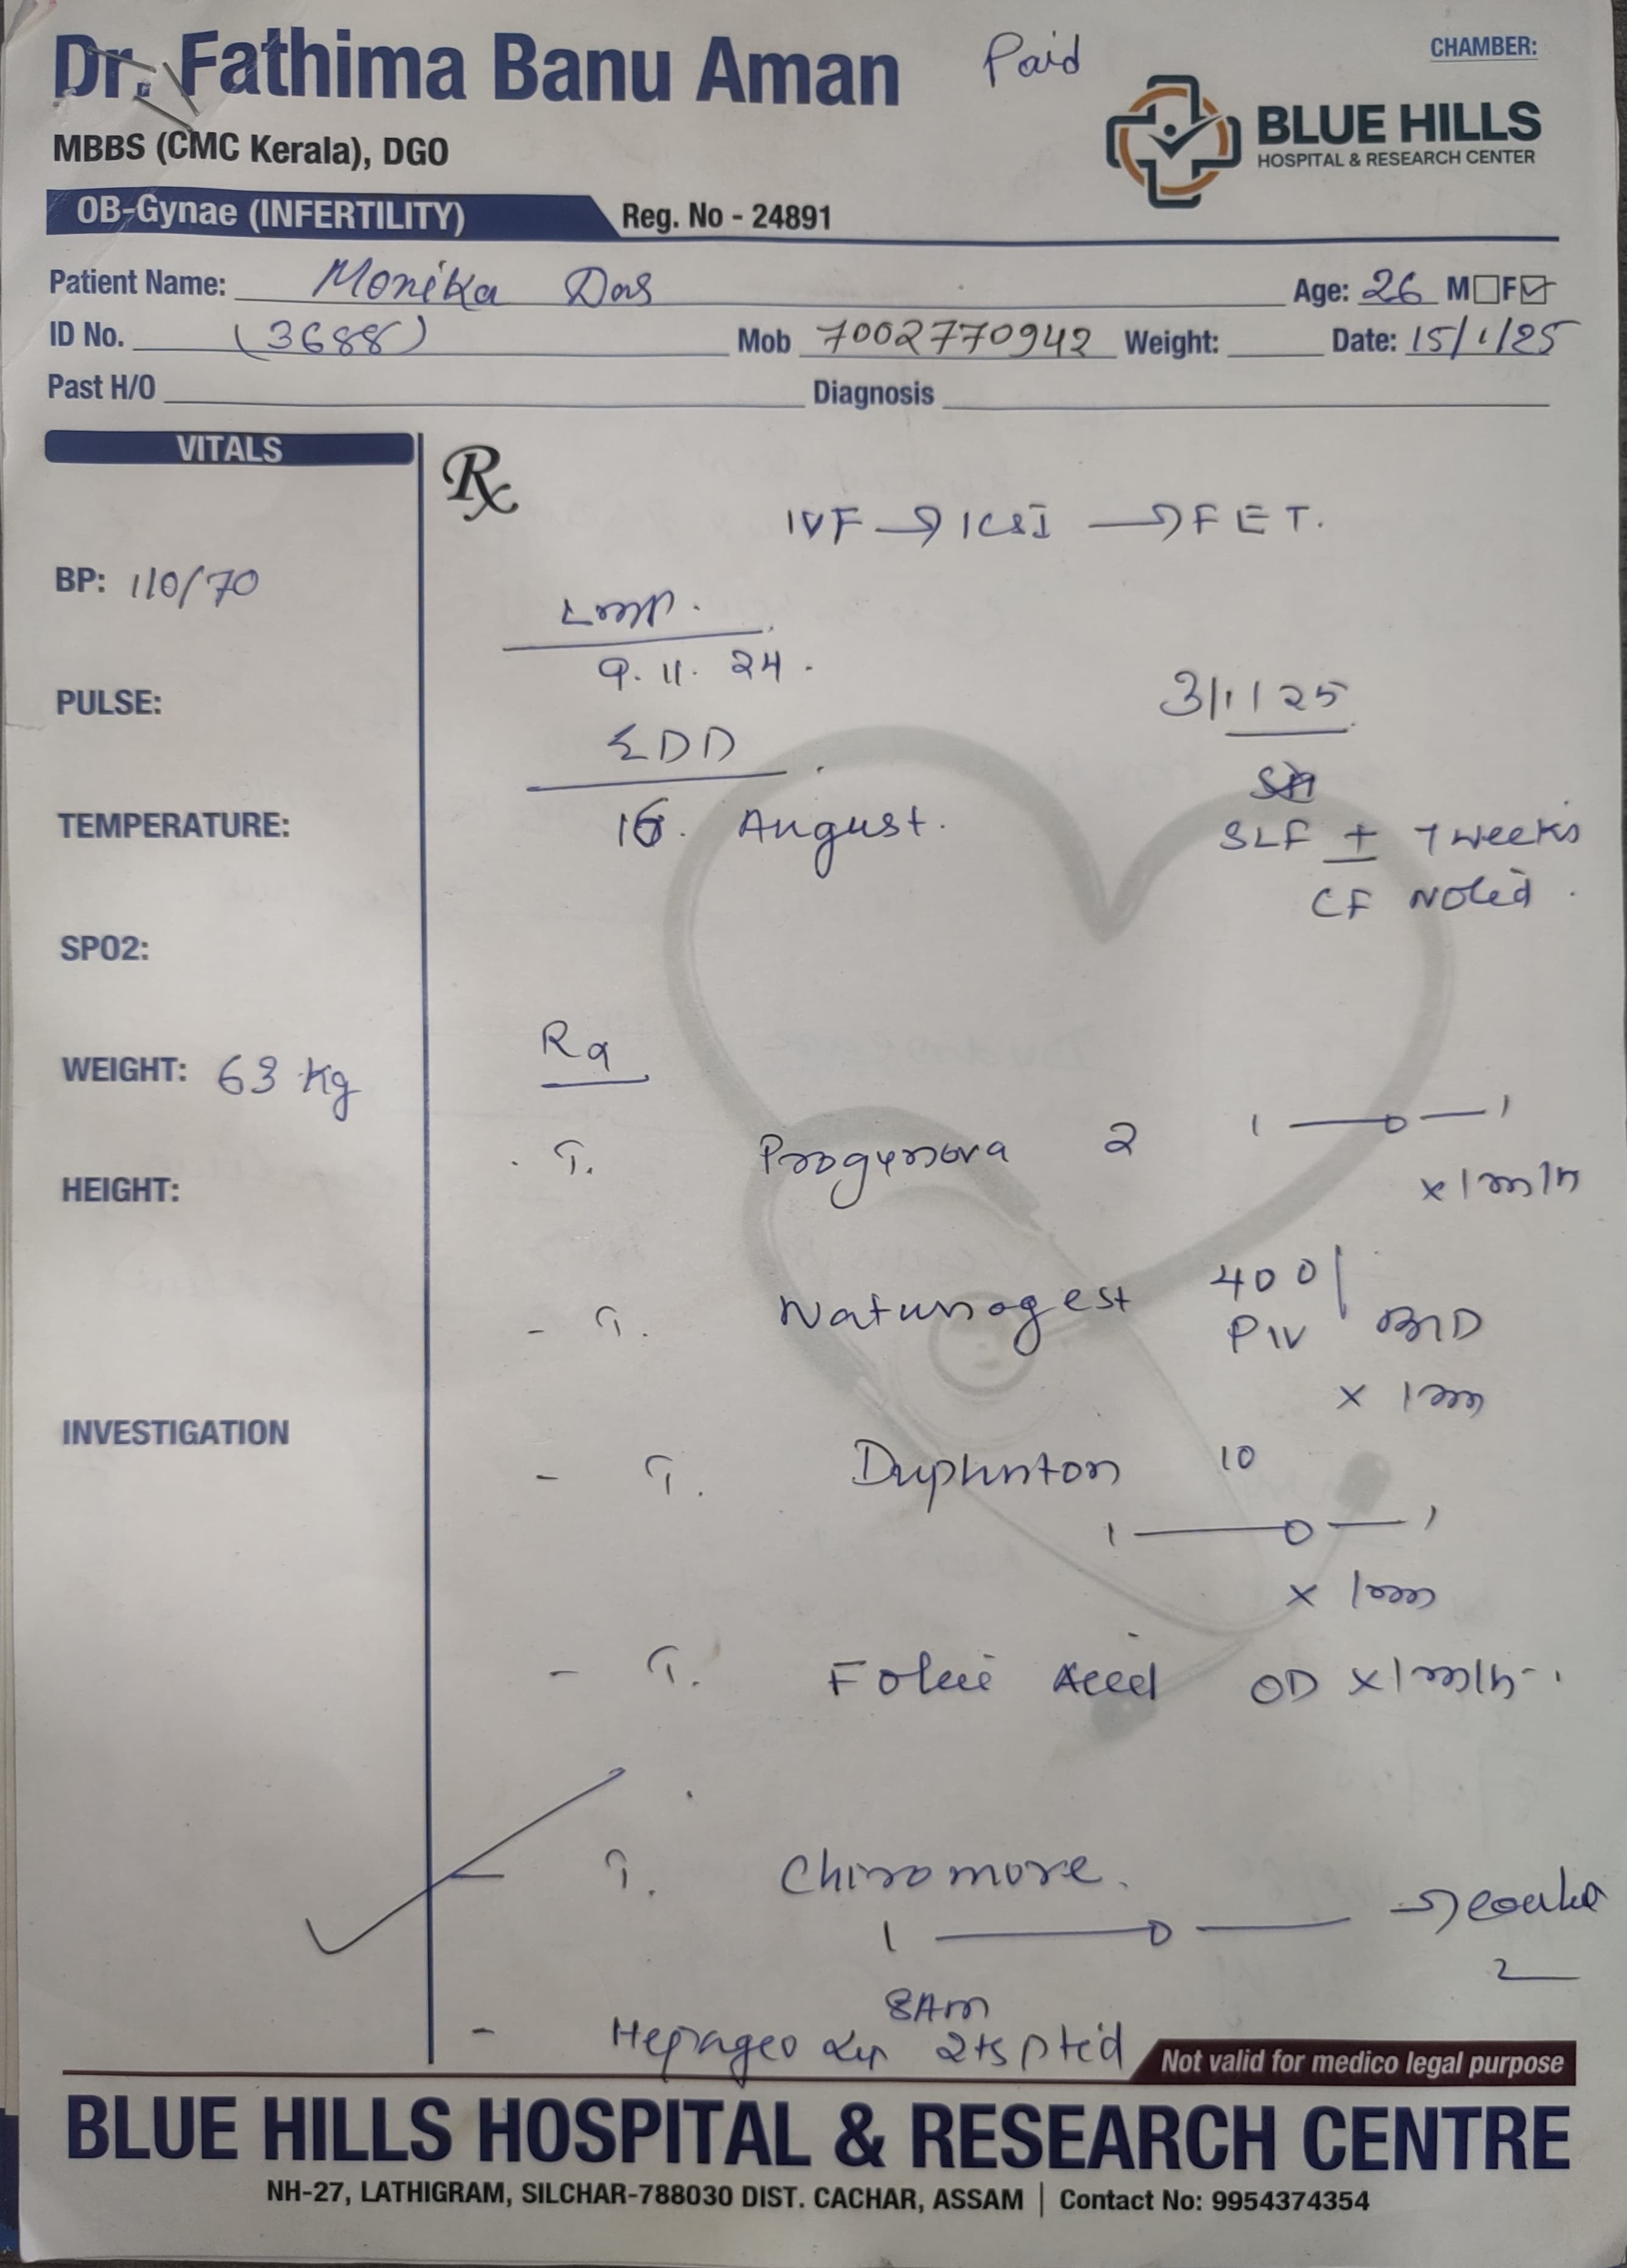 Dr. Fathima Banu Aman
Paid
CHAMBER:
MBBS (CMC Kerala), DGO
BLUE HILLS
HOSPITAL & RESEARCH CENTER
OB-Gynae (INFERTILITY) Reg. No - 24891
Patient Name: Monika Das Age: 26 M F
ID No. (3688) Mob 7002770942 Weight: Date: 15/1/25
Past H/O Diagnosis
VITALS
Rx
IVF → ICSI → FET.
BP: 110/70
LMP.
9.11.24.
PULSE:
3/1/25
EDD
16. August.
TEMPERATURE:
SLF + 7 weeks
CF Noted.
SPO2:
WEIGHT: 63 kg
Rx
T. Progynova 2 1 — 0 — 1
x 1 mth
HEIGHT:
- T. Naturogest 400/
P/V BID
x 1m
INVESTIGATION
- T. Duphaston 10
1 — 0 — 1
x 1m
- T. Folic Acid OD x 1 mth.
- T. 1 — 0 —
2
8 Am
- 2tsp tid
Not valid for medico legal purpose
BLUE HILLS HOSPITAL & RESEARCH CENTRE
NH-27, LATHIGRAM, SILCHAR-788030 DIST. CACHAR, ASSAM | Contact No: 9954374354